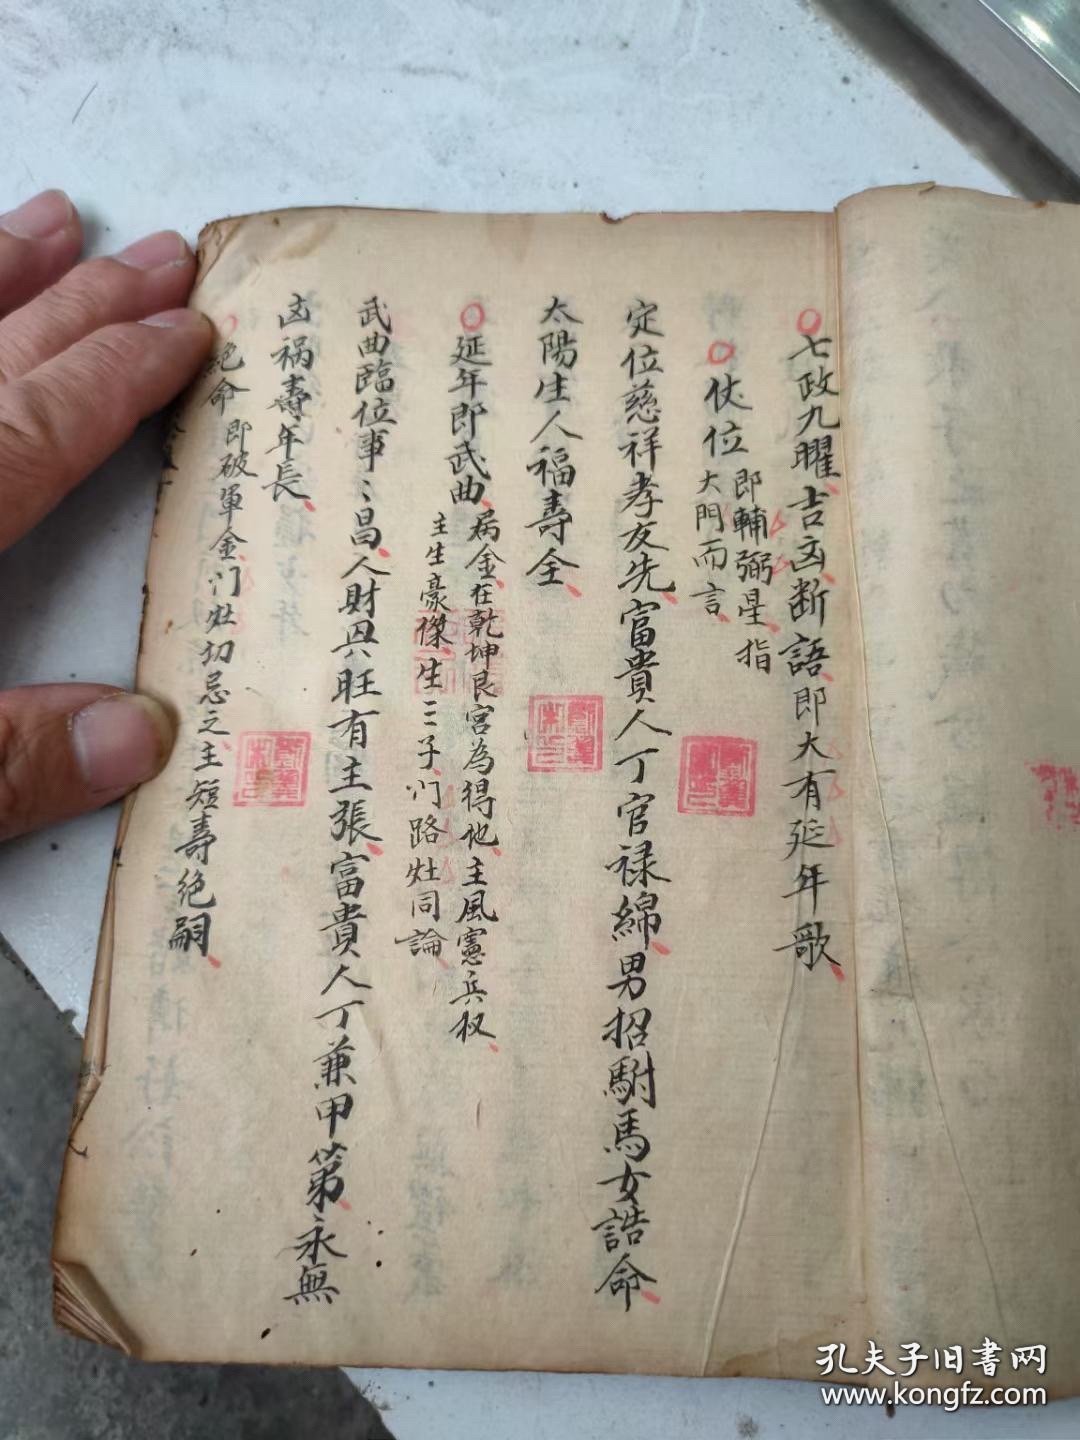 七政九曜吉凶断語即大有延年歌
伏位 即輔弼星指
大門而言
定位慈祥孝友先富貴人丁官禄綿男招駙馬女誥命
太陽生人福壽全
延年即武曲 屬金在乾坤艮宮為得地主風憲兵权
主生豪傑生三子门路灶同論
武曲臨位事〻昌人財與旺有主張富貴人丁兼甲第永無
凶禍壽年長
絶命 即破軍金门灶切忌之主短壽绝嗣
孔夫子旧書网
www.kongfz.com